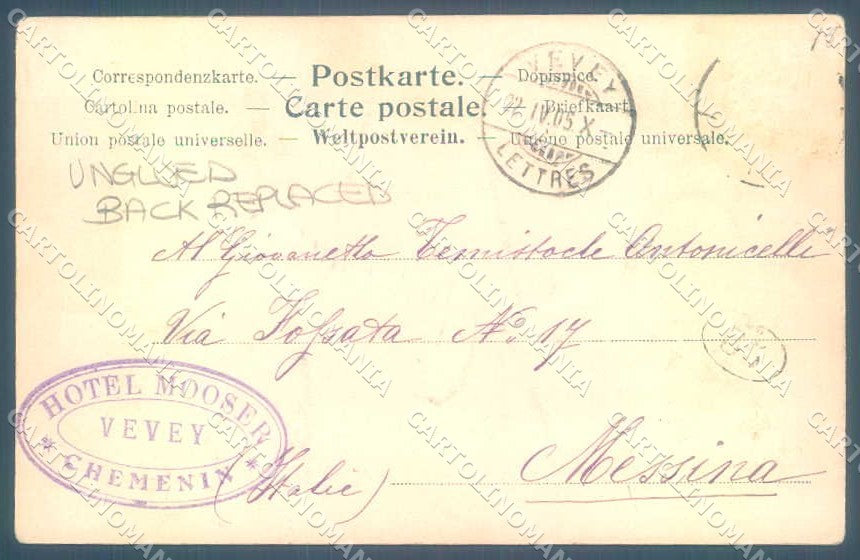 Correspondenzkarte. — Postkarte. — Dopisnice.
Cartolina postale. — Carte postale. — Briefkaart.
Union postale universelle. — Weltpostverein. — Umeno postale universale.
VEVEY
IV.05.X
LETTRES
UNGLUED
BACK REPLACED
Al Giovanetto Temistocle Antonicelli
Via Fossata No. 17
HOTEL MOOSER
VEVEY
* CHEMENIN *
(Italie)
Messina
CARTOLINOMANIA